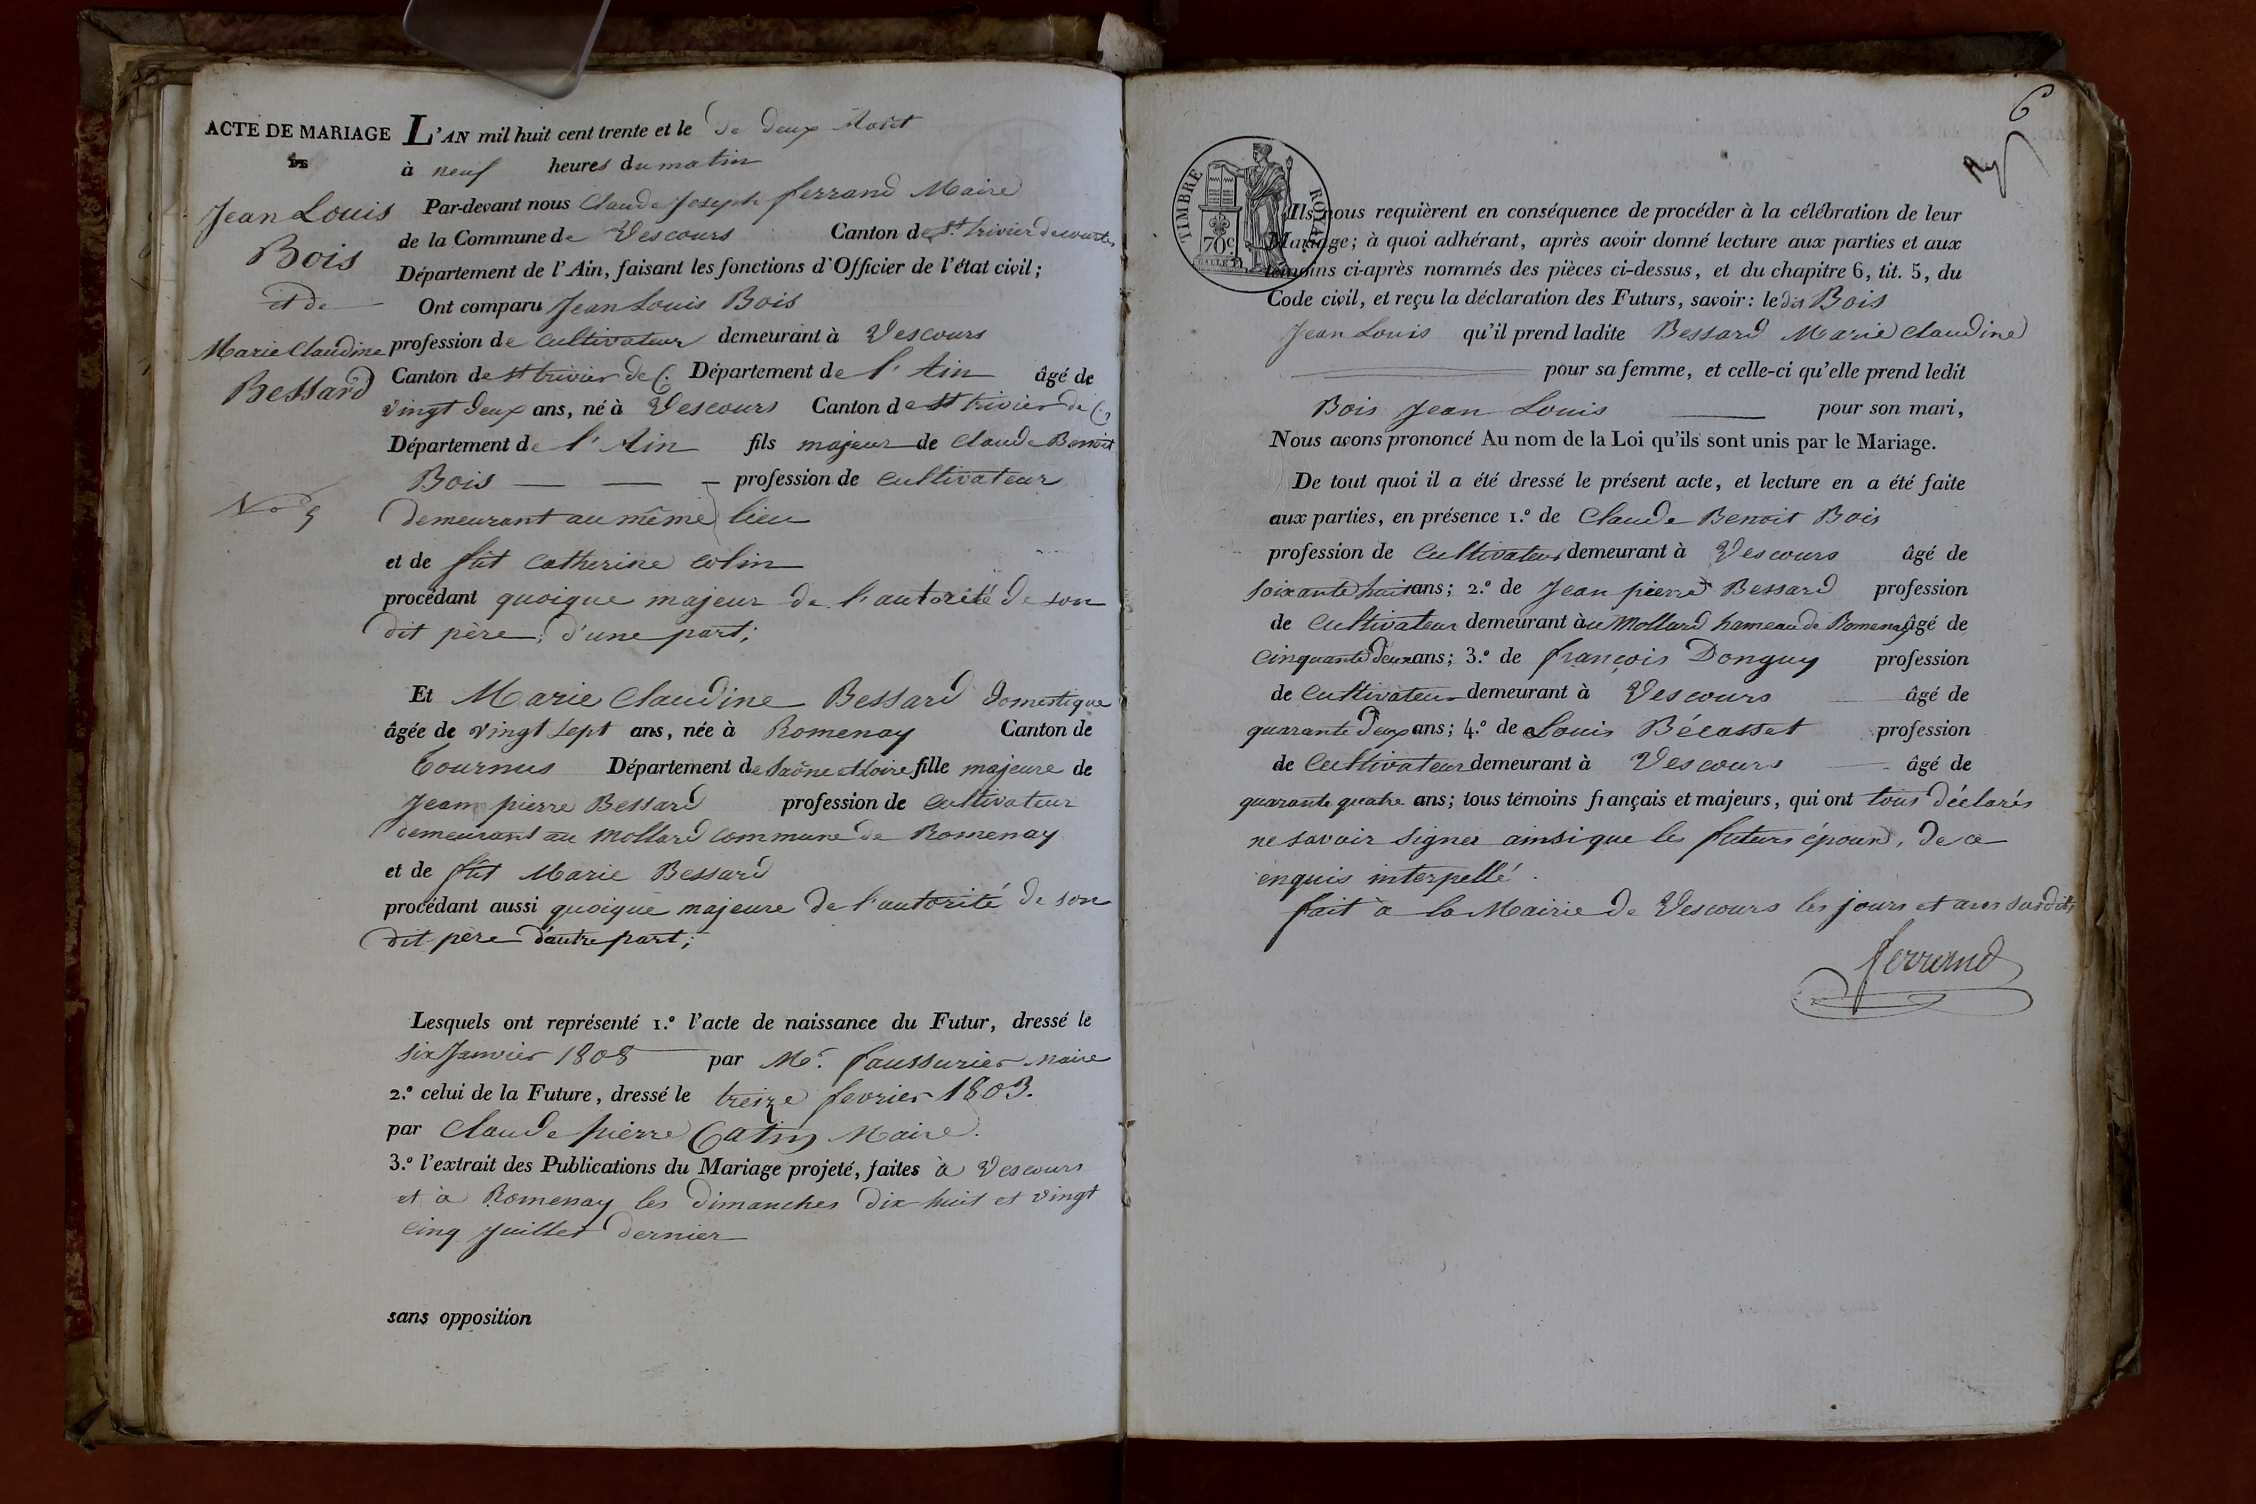 ACTE DE MARIAGE
Jean Louis
Bois
et de
Marie Claudine
Bessard
N.o 5
L'AN mil huit cent trente et le deux Aout
à neuf heures du matin
Par-devant nous Claude Joseph ferrand Maire
de la Commune de Vescours Canton de St. trivier de courtes
Département de l'Ain, faisant les fonctions d'Officier de l'état civil;
Ont comparu Jean Louis Bois
profession de cultivateur demeurant à Vescours
Canton de st trivier de C. Département de l'Ain âgé de
vingt deux ans, né à Vescours Canton de st trivier de C.
Département de l'Ain fils majeur de Claude Benoit
Bois profession de cultivateur
demeurant au même lieu
et de fût Catherine Colin
procédant quoique majeur de l'autorité de son
dit père, d'une part;
Et Marie Claudine Bessard domestique
âgée de vingt sept ans, née à Romenay Canton de
Tournus Département de Saône et Loire fille majeure de
Jean pierre Bessard profession de cultivateur
demeurant au Mollard commune de Romenay
et de fût Marie Bessard
procédant aussi quoique majeure de l'autorité de son
dit père d'autre part;
Lesquels ont représenté 1.° l'acte de naissance du Futur, dressé le
six Janvier 1808 par Mr. faussurier maire
2.° celui de la Future, dressé le treize fevrier 1803.
par Claude pierre Catin Maire.
3.° l'extrait des Publications du Mariage projeté, faites à Vescours
et à Romenay les dimanches dix huit et vingt
cinq Juillet dernier
sans opposition
6
TIMBRE ROYAL
70c
Ils nous requièrent en conséquence de procéder à la célébration de leur
Mariage; à quoi adhérant, après avoir donné lecture aux parties et aux
témoins ci-après nommés des pièces ci-dessus, et du chapitre 6, tit. 5, du
Code civil, et reçu la déclaration des Futurs, savoir: le dit Bois
Jean Louis qu'il prend ladite Bessard Marie Claudine
pour sa femme, et celle-ci qu'elle prend ledit
Bois Jean Louis pour son mari,
Nous avons prononcé Au nom de la Loi qu'ils sont unis par le Mariage.
De tout quoi il a été dressé le présent acte, et lecture en a été faite
aux parties, en présence 1.° de Claude Benoit Bois
profession de cultivateur demeurant à Vescours âgé de
soixante huit ans; 2.° de Jean pierre Bessard profession
de cultivateur demeurant au Mollard hameau de Romenay âgé de
cinquante deux ans; 3.° de françois Donguy profession
de cultivateur demeurant à Vescours âgé de
quarante deux ans; 4.° de Louis Bécasset profession
de cultivateur demeurant à Vescours âgé de
quarante quatre ans; tous témoins français et majeurs, qui ont tous déclarés
ne savoir signer ainsi que les futurs époux, de ce
enquis interpellé.
fait à la Mairie de Vescours les jours et ans susdits
ferrand